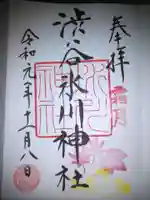 奉拝
渋谷氷川神社
令和元年十一月八日